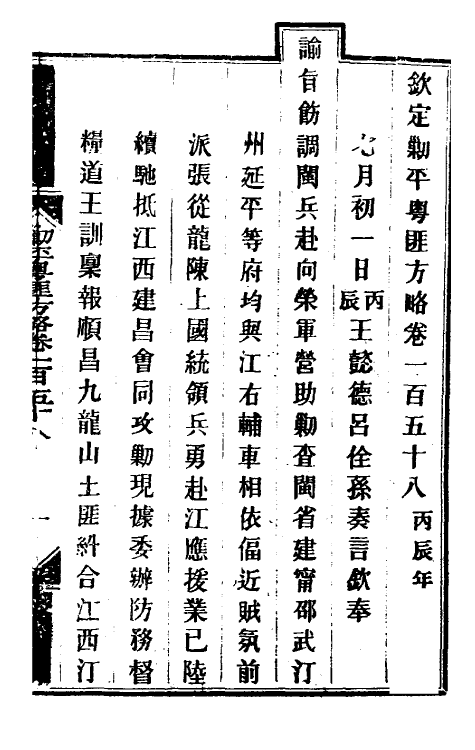 欽定勦平粵匪方略卷一百五十八 丙辰年
七月初一日丙辰王懿德呂佺孫奏言欽奉
諭旨飭調閩兵赴向榮軍營助勦查閩省建甯邵武汀
州延平等府均與江右輔車相依偪近賊氛前
派張從龍陳上國統領兵勇赴江應援業已陸
續馳抵江西建昌會同攻勦現據委辦防務督
糧道王訓稟報順昌九龍山土匪糾合江西汀
勦平粵匪方略卷一百五十八
一